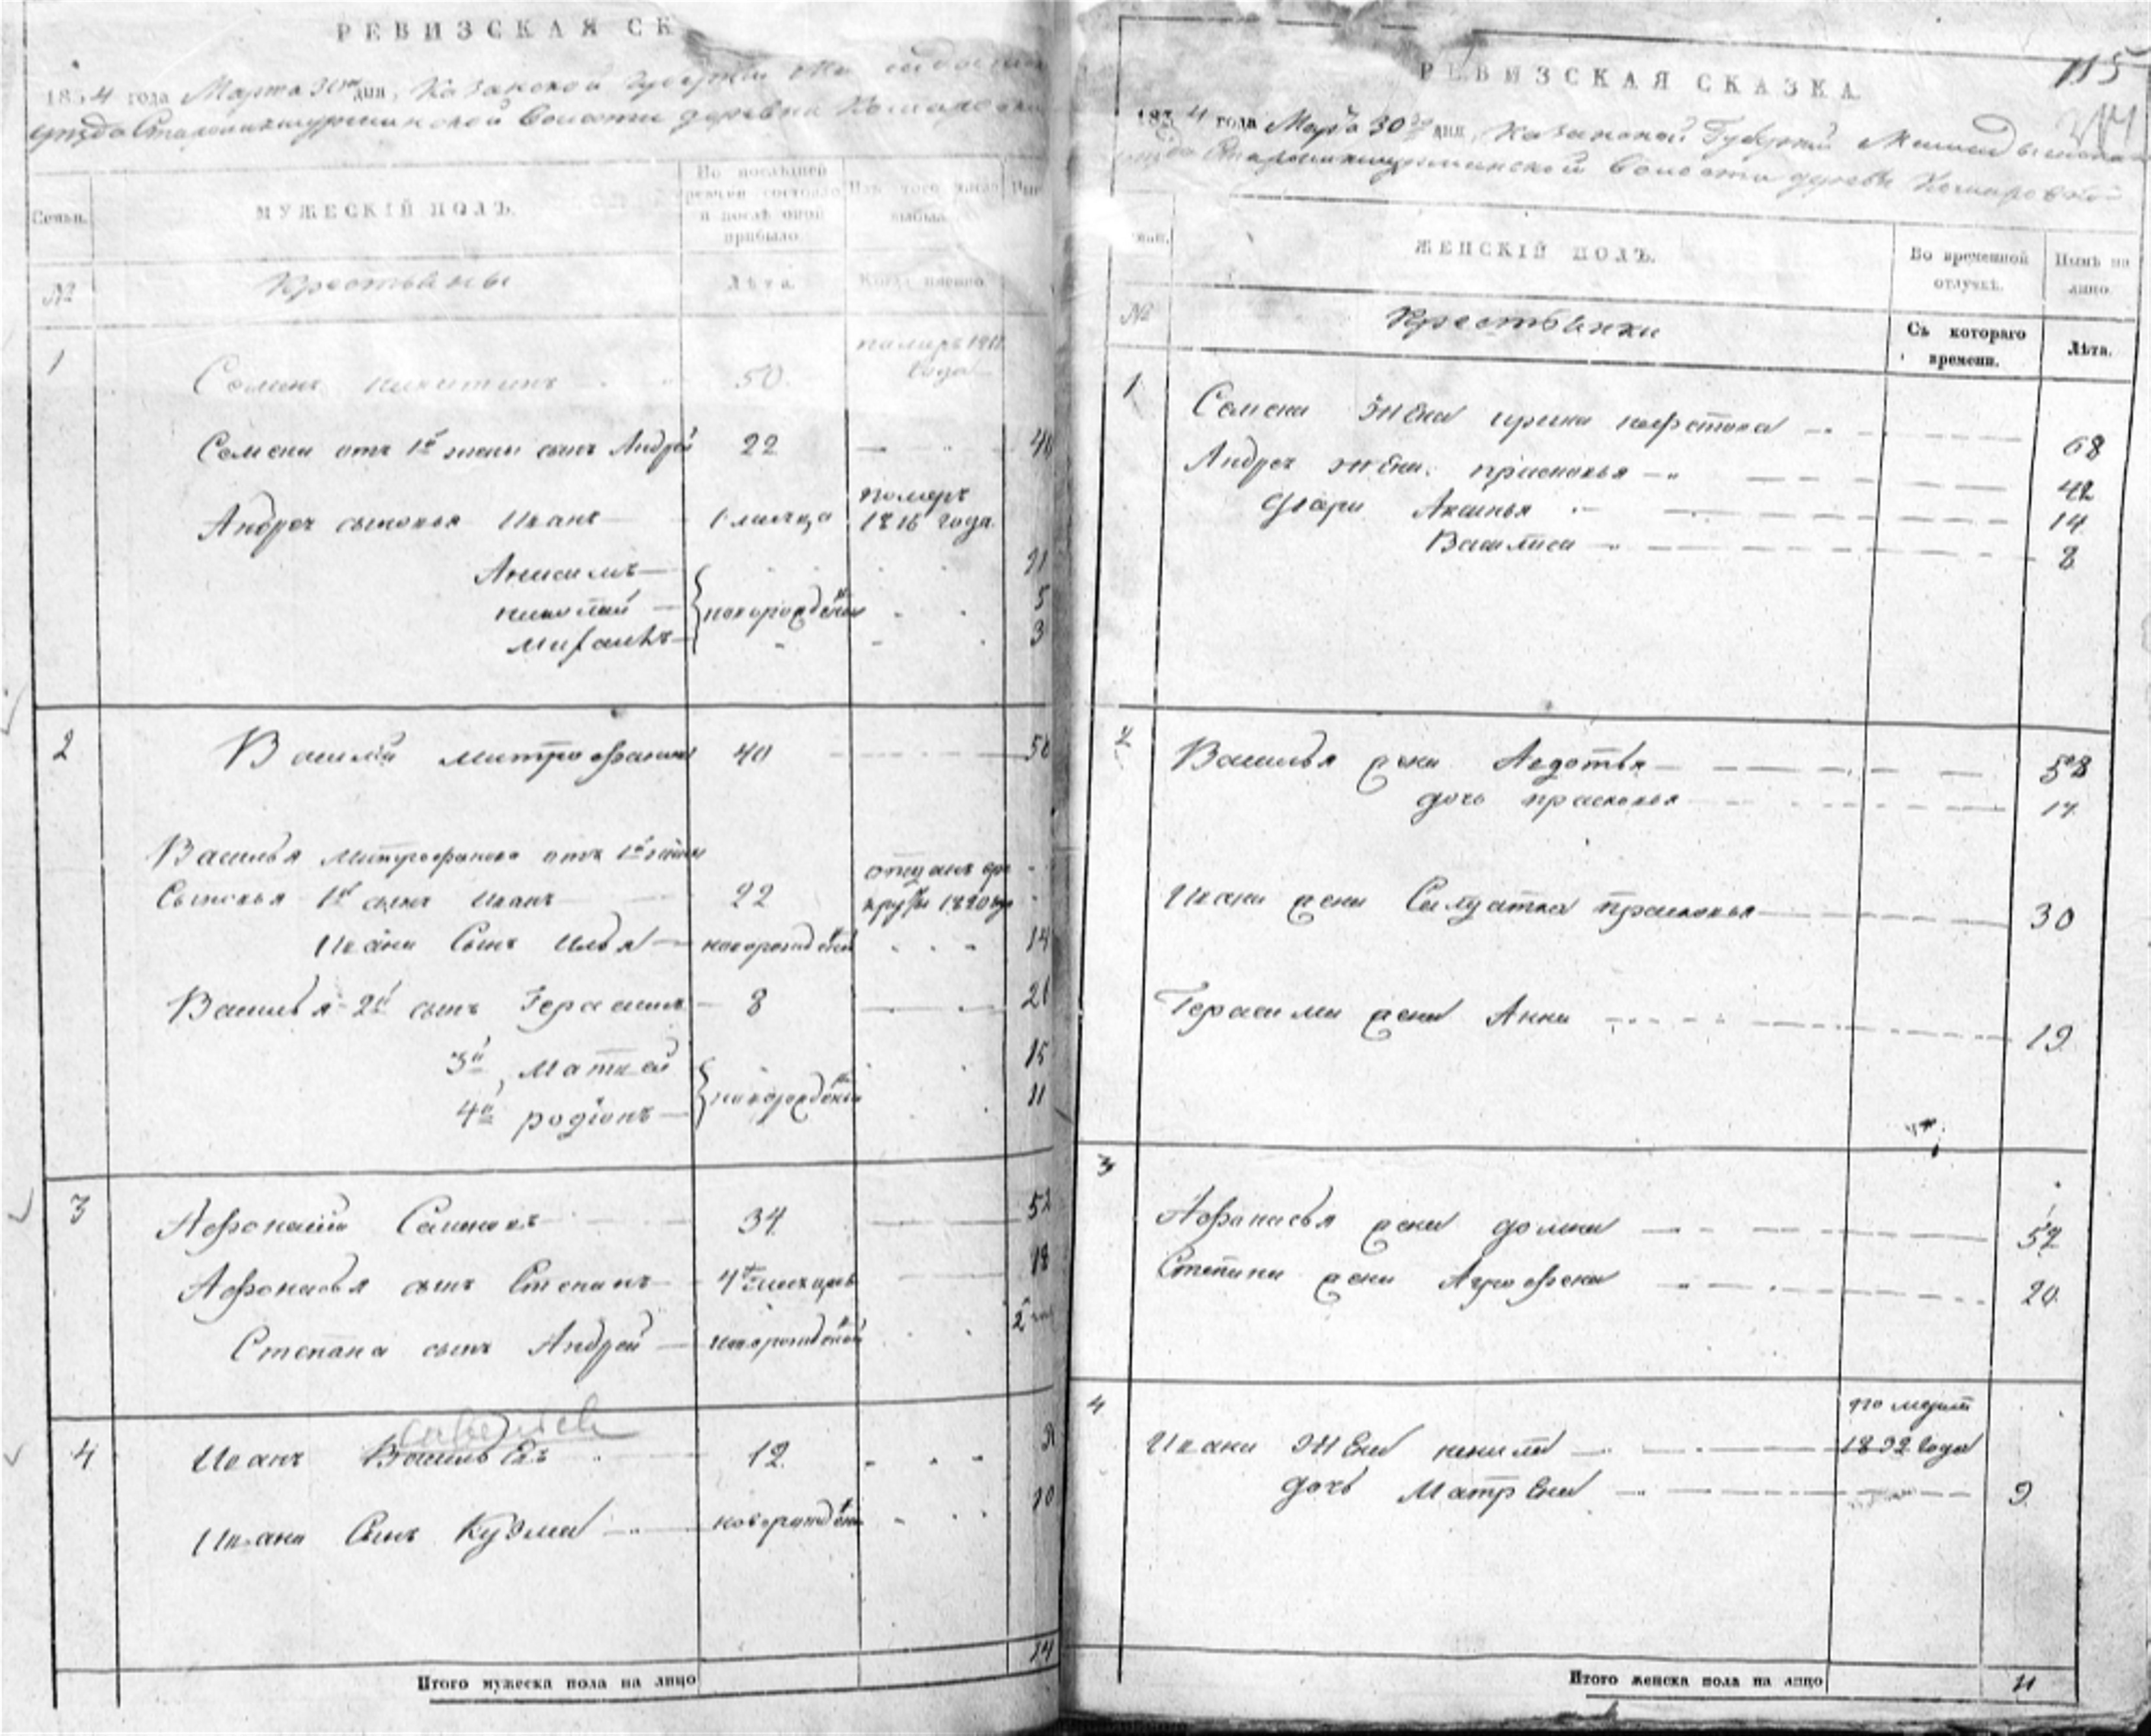 РЕВИЗСКАЯ СК
1834 года Марта 30го дня, Казанской Губернии
уезда волости деревни Комаровской
Семьи.
МУЖЕСКІЙ ПОЛЪ.
По последней ревизіи состояло и после оной прибыло.
Изъ того числа выбыло.
№
Крестьяны
Лѣта.
Когда именно
1
Семенъ никитинъ 50. померъ 1811 года
Семена отъ 1й жены сынъ Андрей 22
Андрея сыновья Иванъ 1 месяца померъ 1816 года.
Анисимъ 21
николай новорожденны 5
михаилъ 3
2
Василій митрофановъ 40
Василья митрофанова отъ 1й жены
Сыновья 1й сынъ Иванъ 22 отданъ въ рекруты 1820 го
Ивана Сынъ Илья новорожденный 14
Василья 2й сынъ Герасимъ 8 26
3й матвей 15
новорожденны
4й родіонъ 11
3
Афонасій Семеновъ 34 52
Афонасья сынъ Степанъ 18
Степана сынъ Андрей новорожденной
савельевъ
4
Иванъ Васильевъ 12
Ивана Сынъ Кузма новорожденны 10
Итого мужеска пола на лицо 14
115
РЕВИЗСКАЯ СКАЗКА
1834 года Марта 30го дня, Казанской Губерніи
уезда волости деревни Комаровской
ЖЕНСКІЙ ПОЛЪ.
Во временной отлучкѣ.
Нынѣ на лицо.
№
Крестьянки
Съ котораго времени.
Лѣта.
1
Семена жена ирина 68
Андрея жена прасковья 42
дочери Аксинья 14
Василиса 8
2
Василья жена Авдотья 58
дочь прасковья 17
Ивана жена Салдатка прасковья 30
Герасима жена Анна 19
3
Афонасья жена домна 52
Степана жена Аграфена 20
4
Ивана жена ненила померла 1832 года
дочь Матрена 9
Итого женска пола на лицо 11